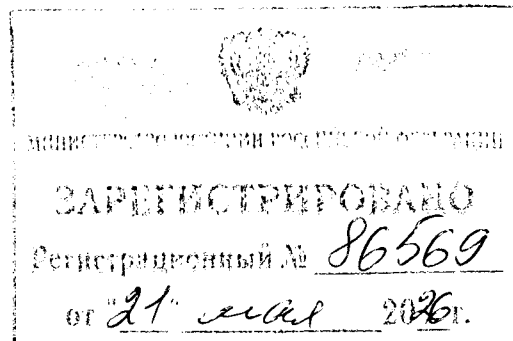 МИНИСТЕРСТВО ЮСТИЦИИ РОССИЙСКОЙ ФЕДЕРАЦИИ
ЗАРЕГИСТРИРОВАНО
Регистрационный № 86569
от "21" мая 2026г.